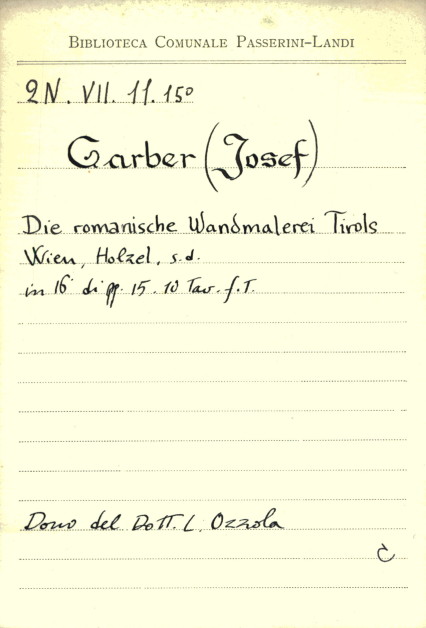 BIBLIOTECA COMUNALE PASSERINI-LANDI
2N. VII. 11. 150
Garber (Josef)
Die romanische Wandmalerei Tirols
Wien, Holzel, s.d.
in 16° di pp. 15. 10 Tav. f.T.
Dono del Dott. L. Ozzola